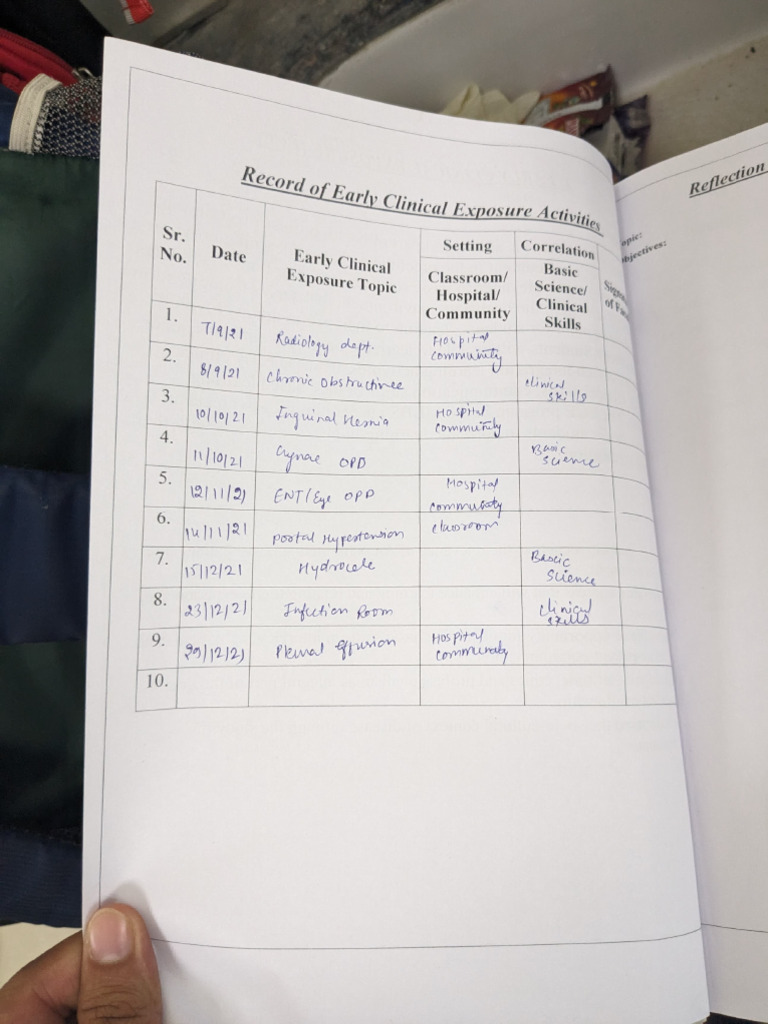 Record of Early Clinical Exposure Activities
Sr. No. Date Early Clinical Exposure Topic Setting Correlation
Classroom/ Hospital/ Community Basic Science/ Clinical Skills
1. 7/9/21 Radiology dept. Hospital community
2. 8/9/21 Chronic Obstructinee clinical skills
3. 10/10/21 Inguinal Hernia Hospital community
4. 11/10/21 Gynae OPD Basic science
5. 12/11/21 ENT/Eye OPD Hospital community
6. 14/11/21 portal Hypertension classroom
7. 15/12/21 Hydrocele Basic science
8. 23/12/21 Infection Room clinical skills
9. 29/12/21 Pleural effusion Hospital community
10.
Reflection